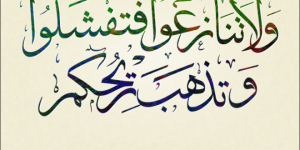 وَلَا تَنَازَعُوا فَتَفْشَلُوا
وَتَذْهَبَ رِيحُكُمْ